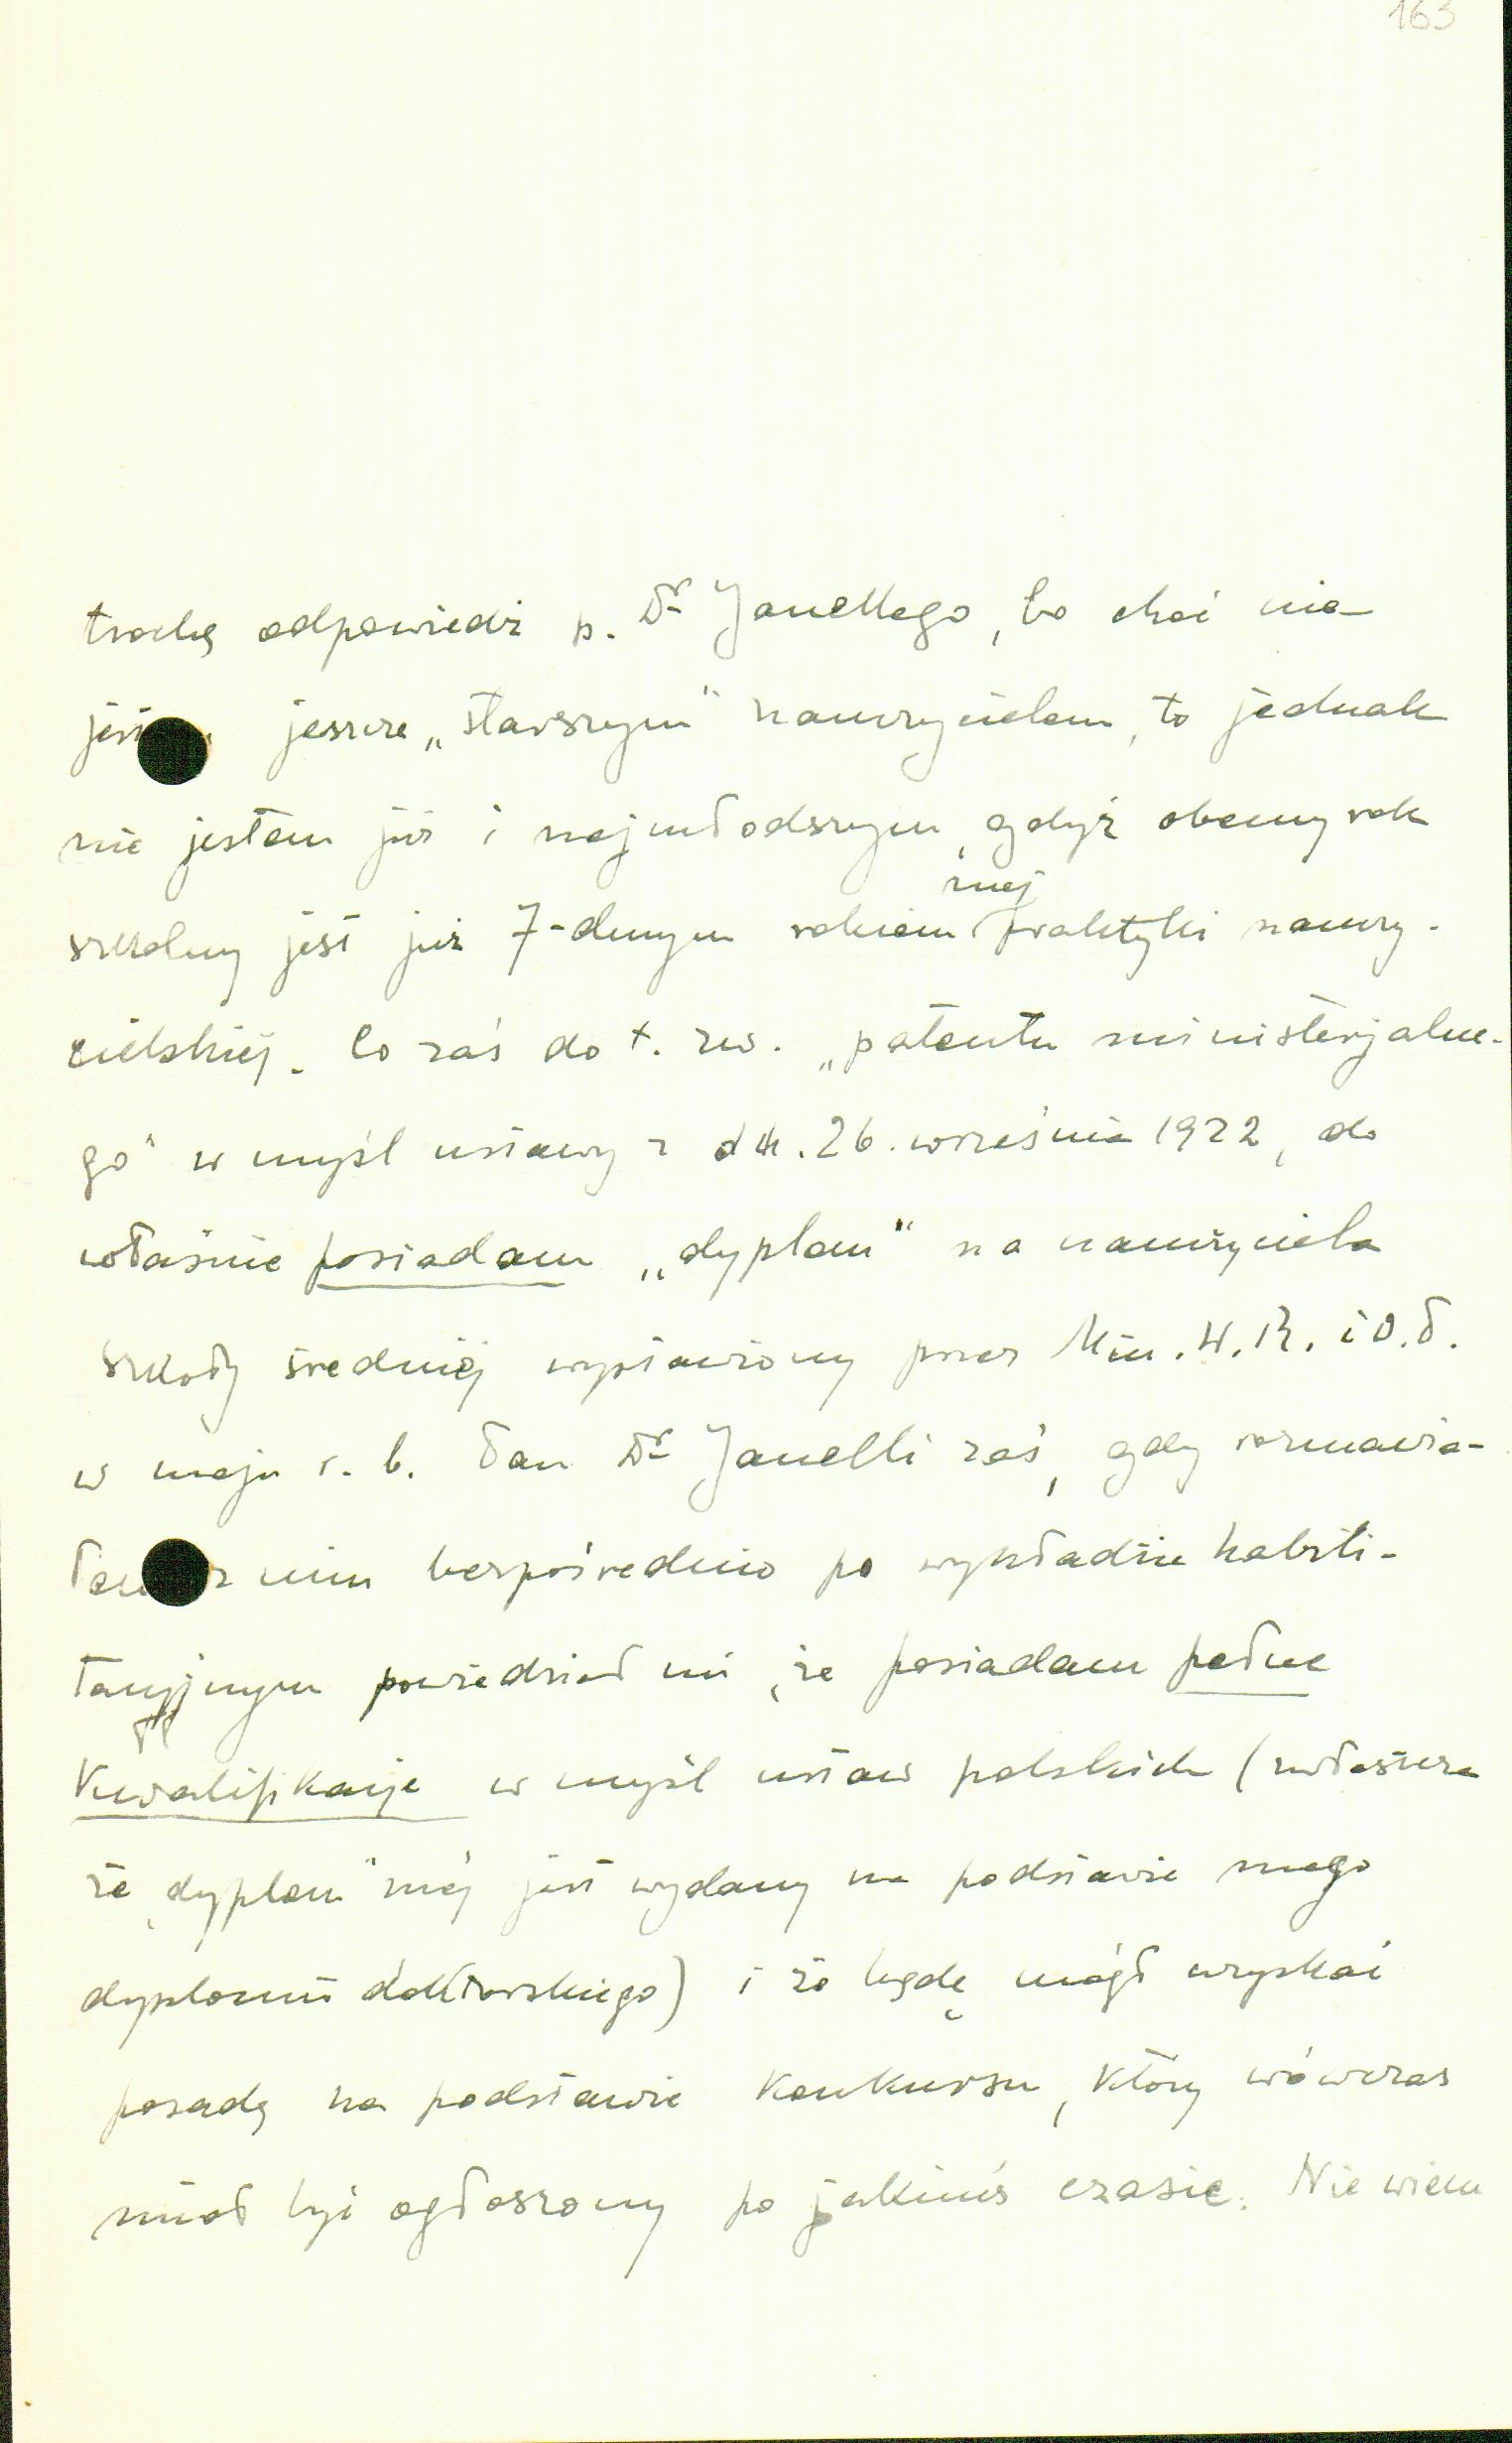 163
trochę odpowiedź p. Dr Janellego, bo choć nie
jestem jeszcze „starszym" nauczycielem, to jednak
nie jestem już i najmłodszym, gdyż obecny rok
szkolny jest już 7-dmym rokiem mej praktyki nauczy-
cielskiej. Co zaś do t. zw. „patentu ministerjalne-
go" w myśl ustawy z dn. 26. września 1922, to
właśnie posiadam „dyplom" na nauczyciela
szkoły średniej wystawiony przez Min. W. R. i O. P.
w maju r. b. Pan Dr Janelli zaś, gdy rozmawia-
łem z nim bezpośrednio po wykładzie habili-
tacyjnym powiedział mi, że posiadam pełne
kwalifikacje w myśl ustaw polskich (zwłaszcza
że „dyplom" mój jest wydany na podstawie mego
dyplomu doktorskiego) i że będę mógł uzyskać
posadę na podstawie konkursu, który wówczas
miał być ogłoszony po jakimś czasie. Nie wiem